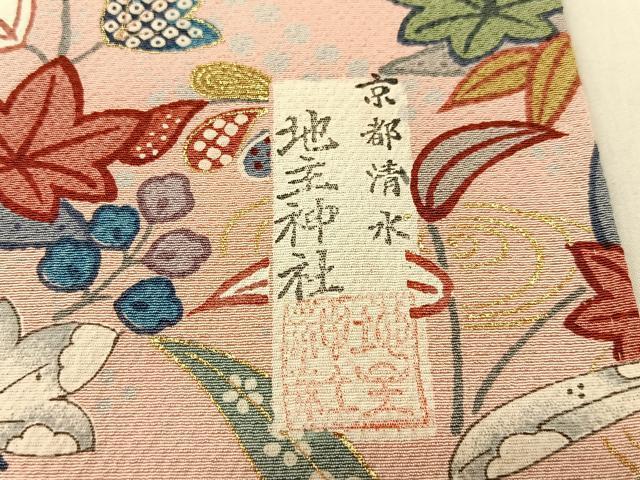 京都清水
地主神社
地主
神社